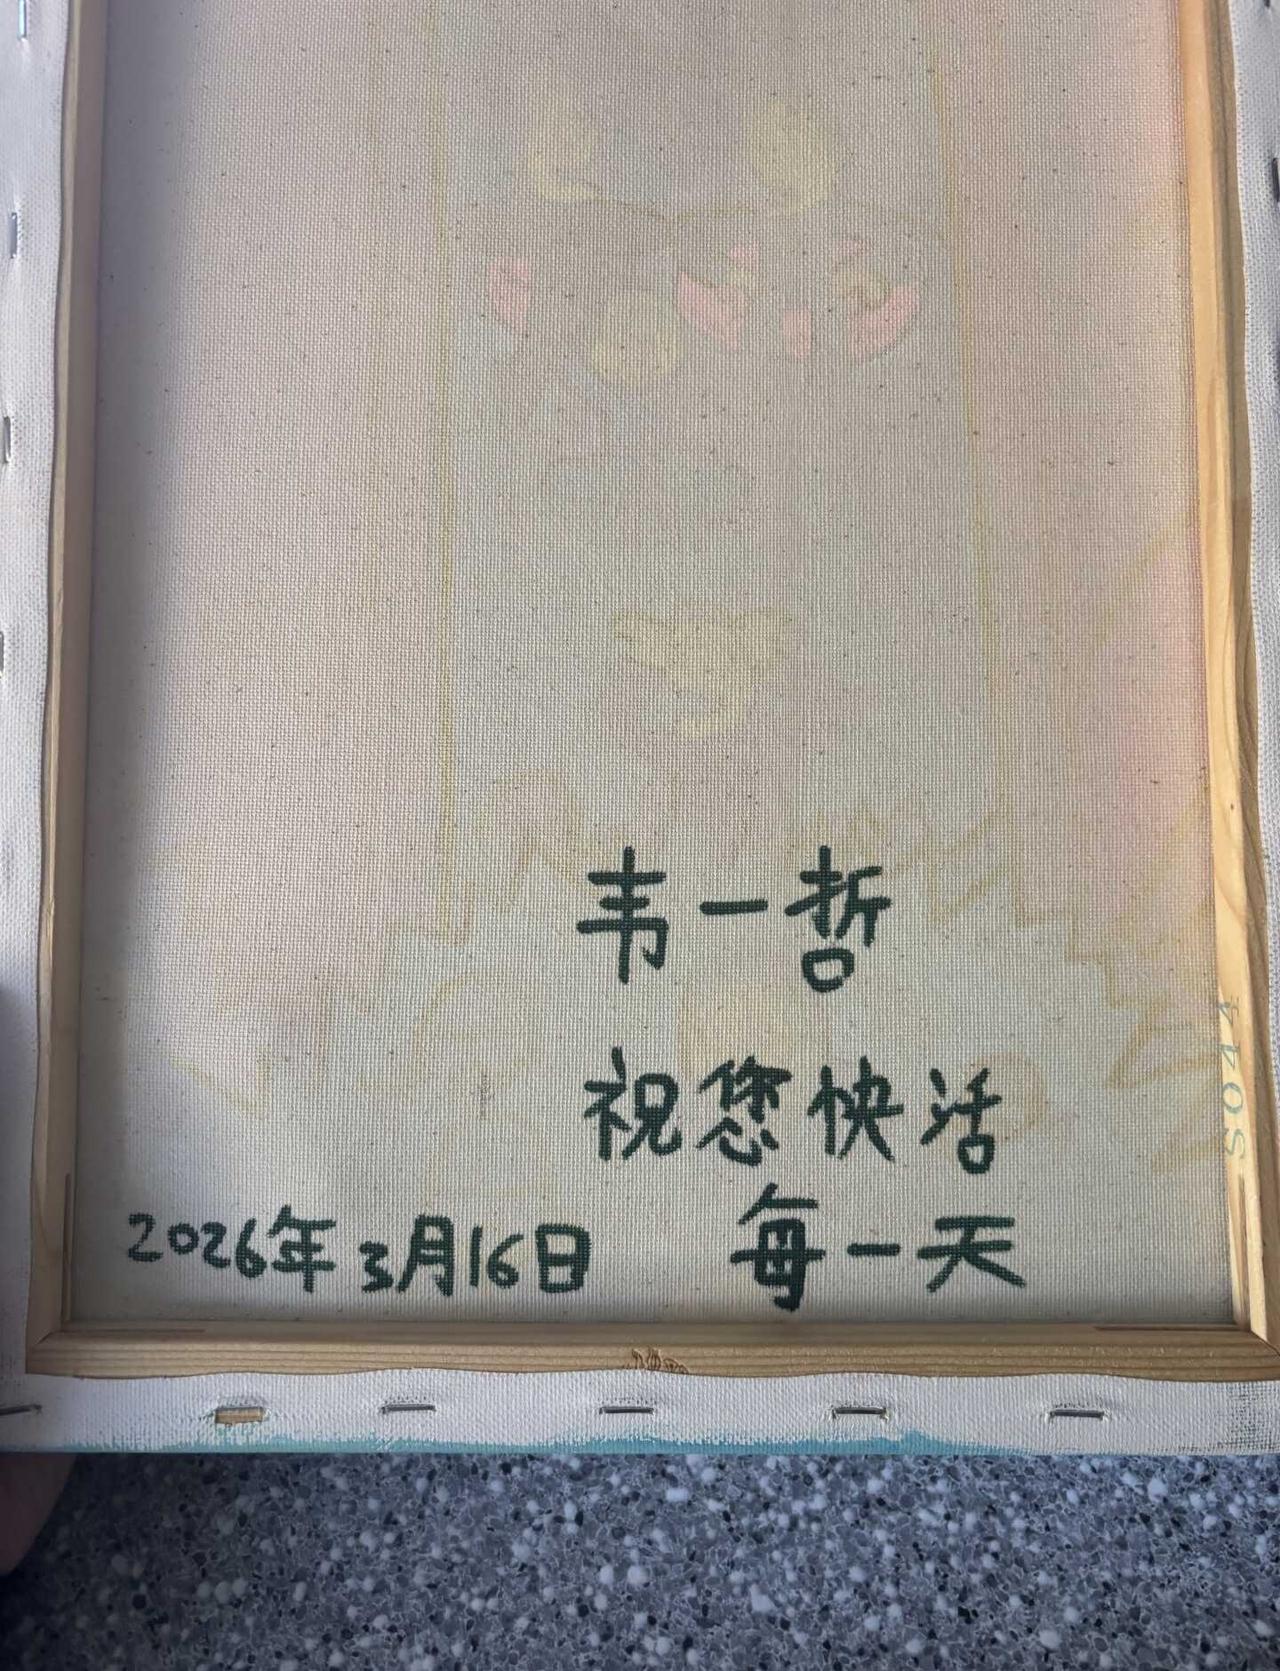 韦一哲
祝您快活
每一天
2026年3月16日
S044